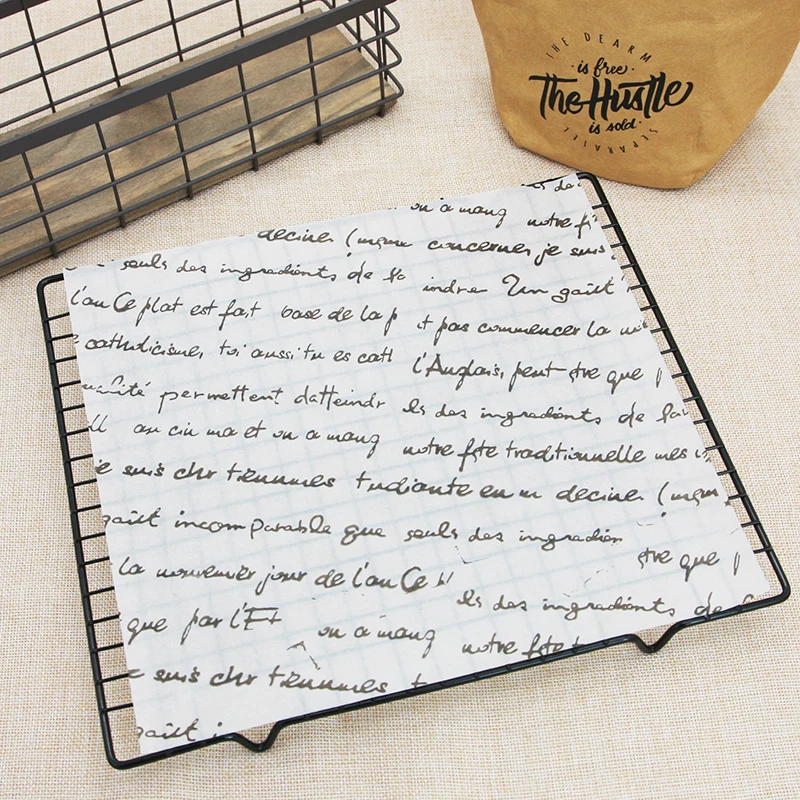 THE DEARM
is free
The Hustle
is sold
SEPARATELY
on a mang notre
decine (mgm concerner je suis
seuls des ingredients de
indre Un gaiit
l'an Ce plat est fait base de la p
pas commencer la
catholicisme, toi aussi tu es catl
l'Anglais, peut etre que
permettent datteindr
des ingredients de
au cin ma et on a mang
notre fete traditionnelle mes
suis chr tiennmes tudiante en m decine (mgm
gaiit incomparable que seuls des ingredien
tre que
la jour de l'an Ce
des ingredients de
que par l'Et
on a mang notre fete
suis chr tiennmes t
gaiit i